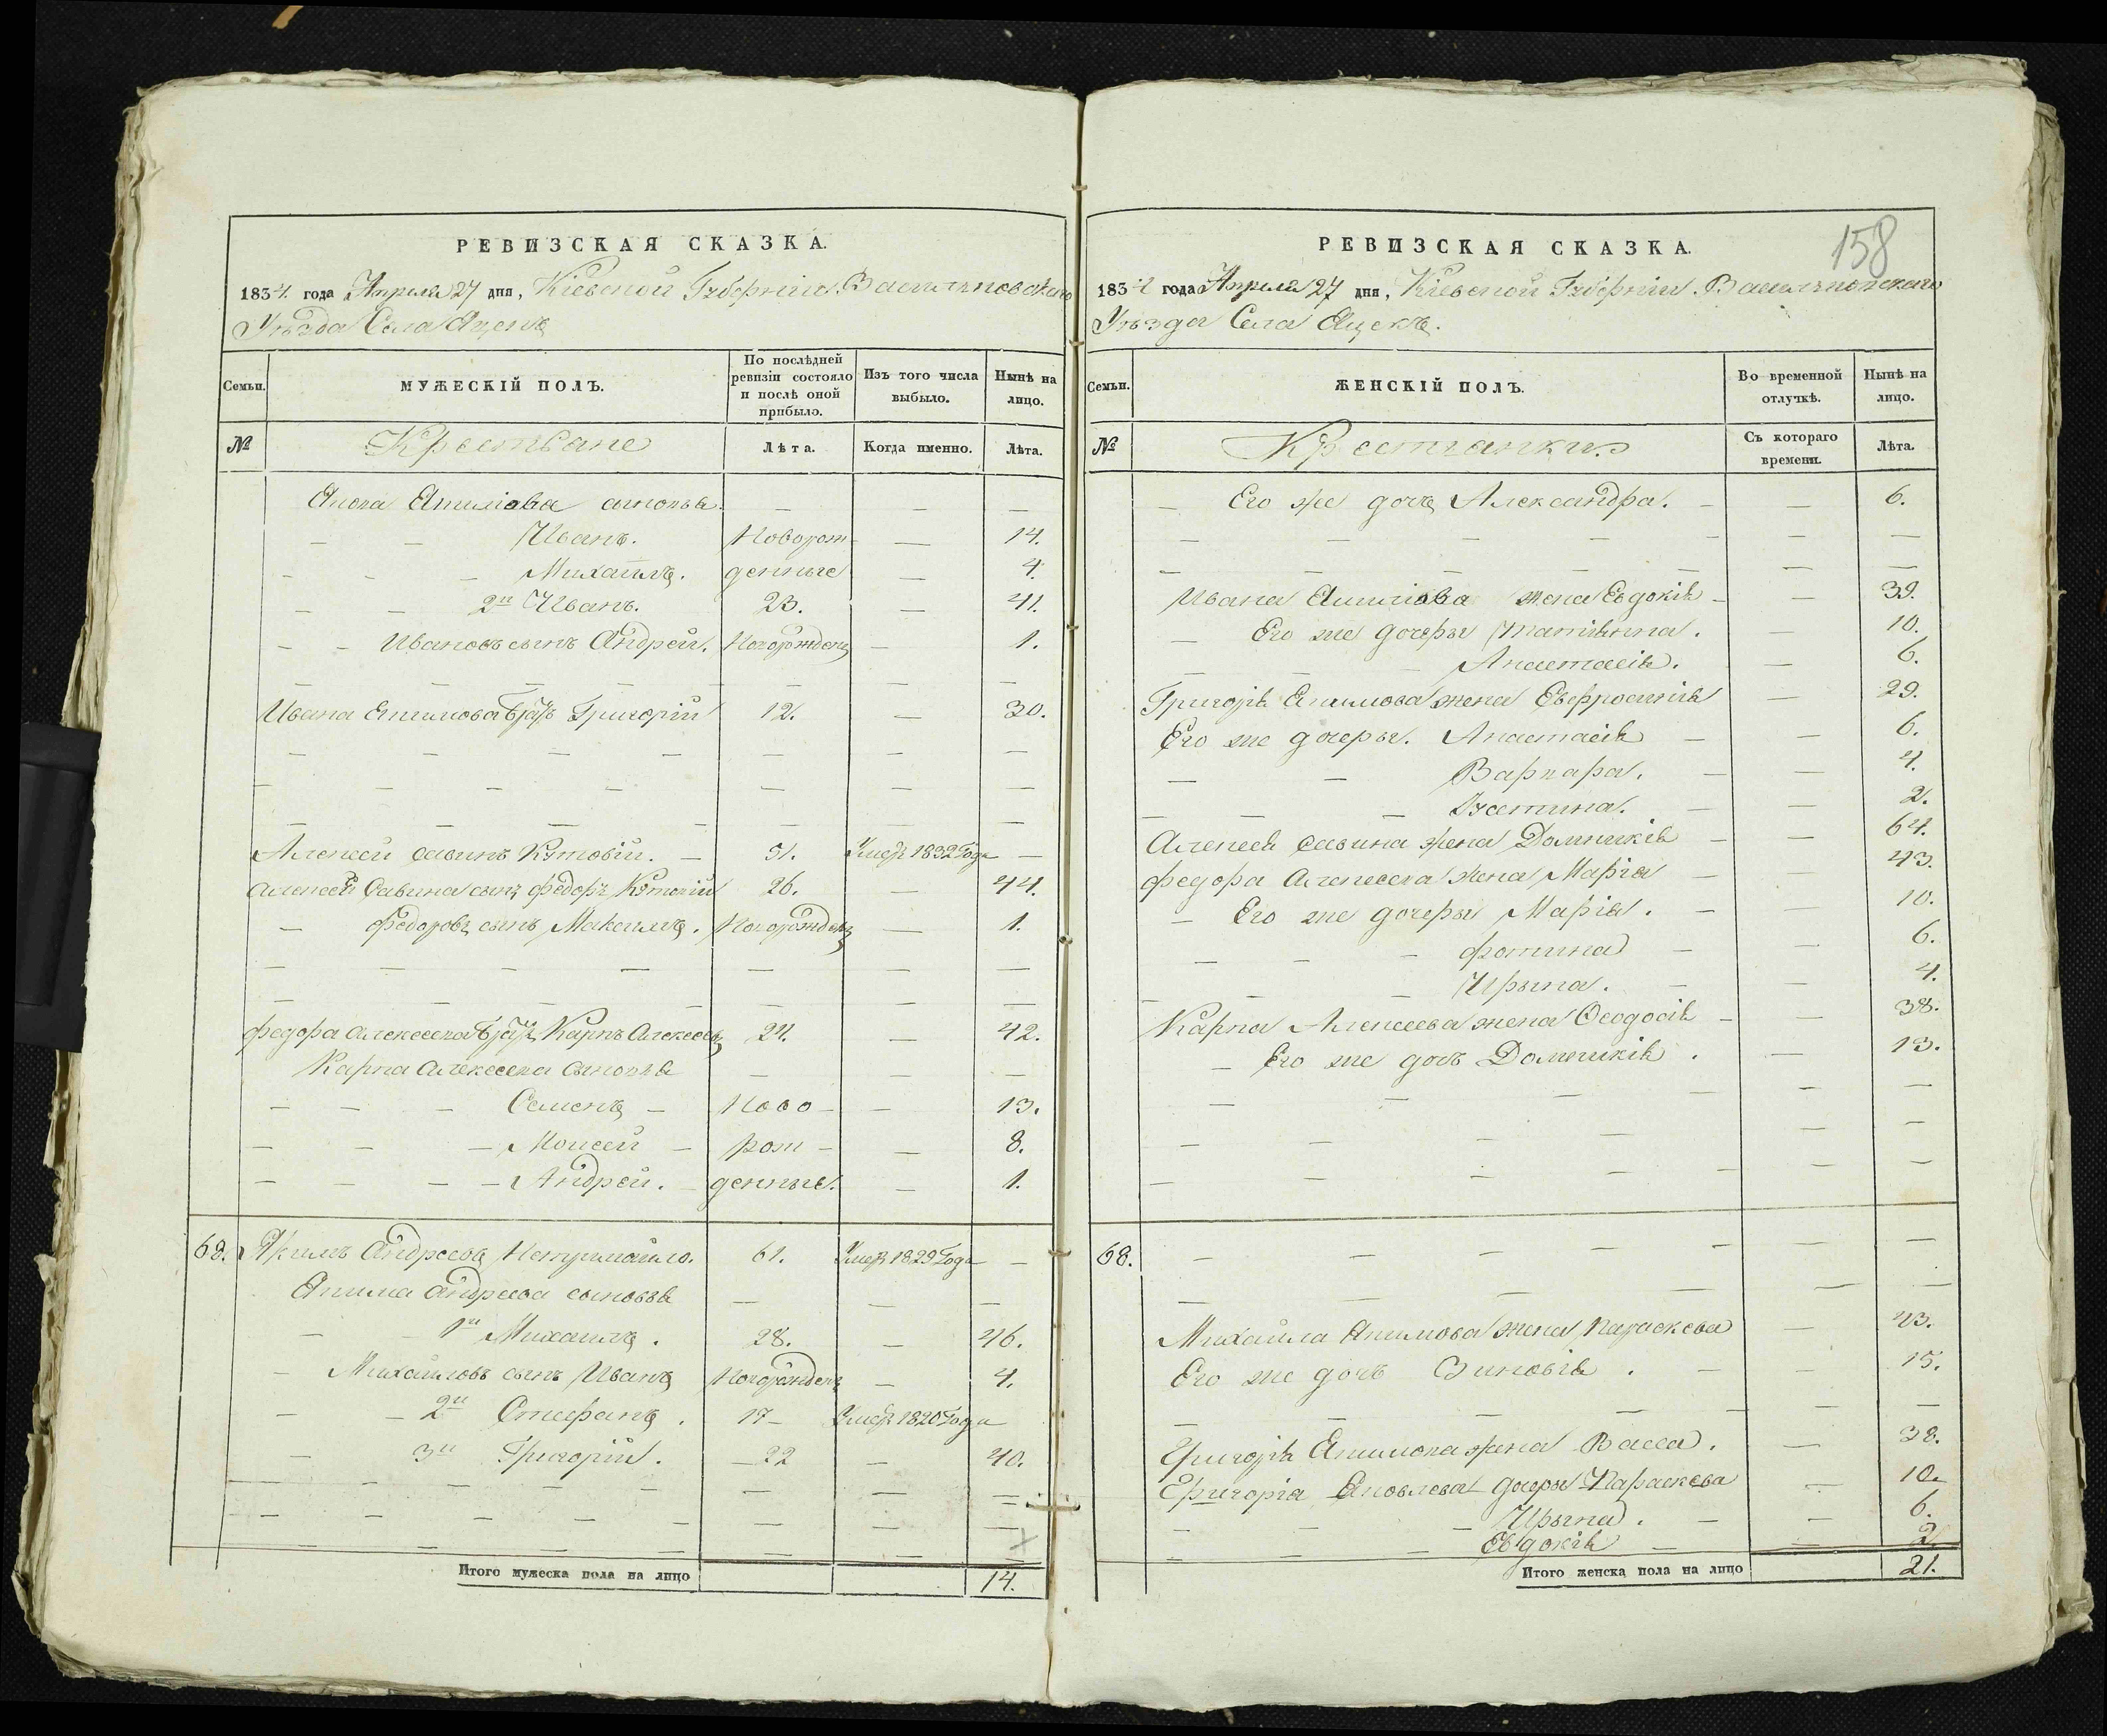 РЕВИЗСКАЯ СКАЗКА.
1834 года Апреля 27 дня, Кіевской Губерніи Васильковскаго
Уѣзда Села Яцекъ
Семьи.
МУЖЕСКІЙ ПОЛЪ.
По послѣдней ревизіи состояло и послѣ оной прибыло.
Изъ того числа выбыло.
Нынѣ на лицо.
№ Крестьяне Лѣта. Когда именно. Лѣта.
Якимова сыновья. — — —
— — Иванъ. Новорож — 14.
— — — Михаилъ. денные — 4.
— — 2й Иванъ. 23. — 41.
— — Ивановъ сынъ Андрей. Новорожденъ — 1.
— — — — — — —
Ивана Якимова братъ Григорій 12. — 30.
— — — — — — —
— — — — — — —
— — — — — — —
Алексей Савинъ Кутовій. — 51. Умеръ 1832 Года —
Алексея Савина сынъ Федоръ Кутовій 26. — 44.
— Федоровъ сынъ Максимъ. Новорожденъ — 1.
— — — — — — —
— — — — — — —
Федора Алексеева братъ Карпъ Алексеевъ 24. — 42.
Карпа Алексеева сыновья — — —
— — — Семенъ — Ново — — 13.
— — — Моисей — рож — — 8.
— — — Андрей. — денные. — 1.
68. Якимъ Андреевъ Нетримайло. 61. Умеръ 1829 Года —
Якима Андреева сыновья — — —
— — 1й Михаилъ. 28. — 46.
— Михайловъ сынъ Иванъ Новорожденъ — 4.
— — 2й Стефанъ. 17 — Умеръ 1820 Года
— 3й Григорій. — 22 — 40.
— — — — — — — —
— — — — — — — —
— — — — — — — —
Итого мужеска пола на лицо 14.
158
РЕВИЗСКАЯ СКАЗКА.
1834 года Апреля 27 дня, Кіевской Губерніи Васильковскаго
Уѣзда Села Яцекъ.
Семьи.
ЖЕНСКІЙ ПОЛЪ.
Во временной отлучкѣ.
Нынѣ на лицо.
№ Крестьянки Съ котораго времени. Лѣта.
— Его же дочь Александра. — — 6.
— — — — — — —
— — — — — — —
Ивана Якимова жена Евдокія — — 39.
— Его же дочеры Татіянна. — 10.
— — — Анастасія. — 6.
Григорія Якимова жена Евфросинія — 29.
Его же дочеры. Анастасія — — 6.
— — Варвара. — — 4.
— — — Устина. — — 2.
Алексея Савина жена Домникія — — 64.
Федора Алексеева жена Марія — — 43.
— Его же дочеры Марія. — — 10.
— — — Фотина — — 6.
— — — Ирына. — — 4.
Карпа Алексеева жена Феодосія — — 38.
— Его же дочь Домникія. — 13.
— — — — — —
— — — — — —
— — — — — —
68. — — — — — —
— — — — — —
Михайла Якимова жена Параскева — 43.
Его же дочь Зиновія. — — 15.
— — — — — —
Григорія Якимова жена Васса. — 38.
Григорія Яковлева дочеры Параскева — 10.
— — — Ирына. — — 6.
— — — Евдокія — — 2.
Итого женска пола на лицо 21.